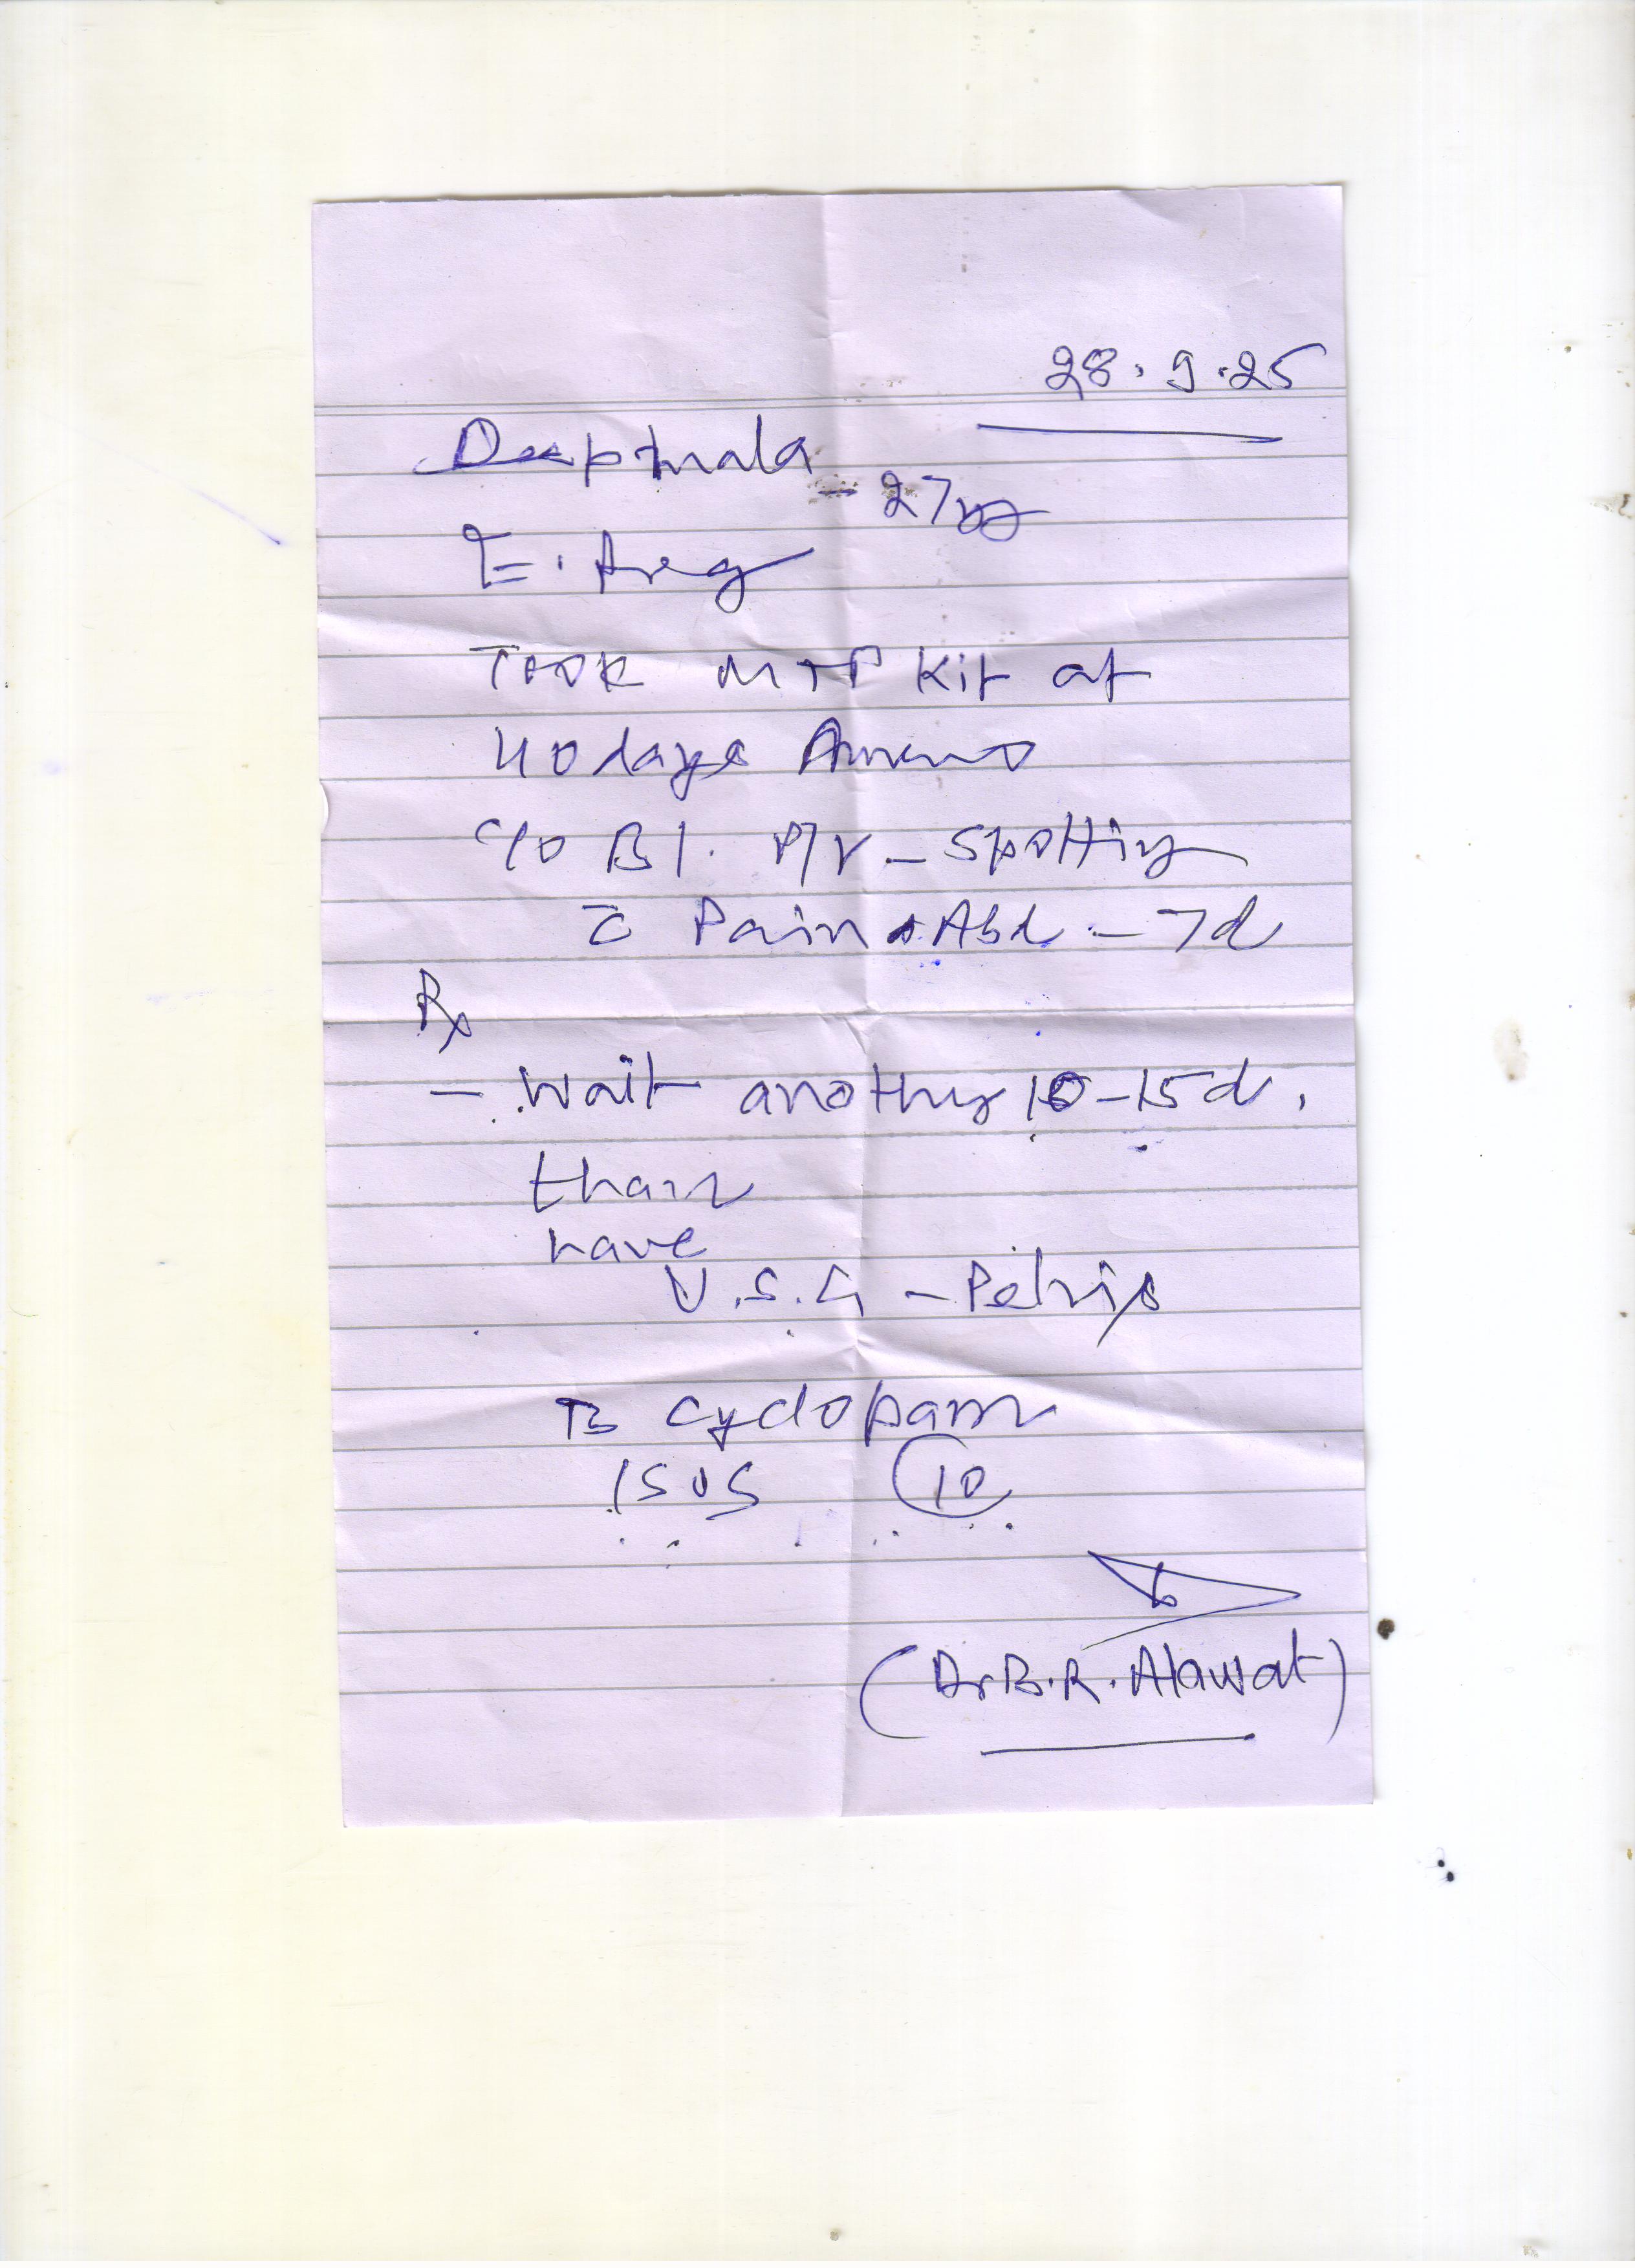 28.9.25
Deepmala - 27yrs
E. Preg
Took MTP Kit at
40 days Ameno
C/o Bl. P/V - Spotting
c̄ Pain Abd - 7d
Rx
- Wait another 10-15d.
than
have
U.S.G - Pelvis
TB Cyclopam
1 SOS (10)
(Dr B.R. Alawat)